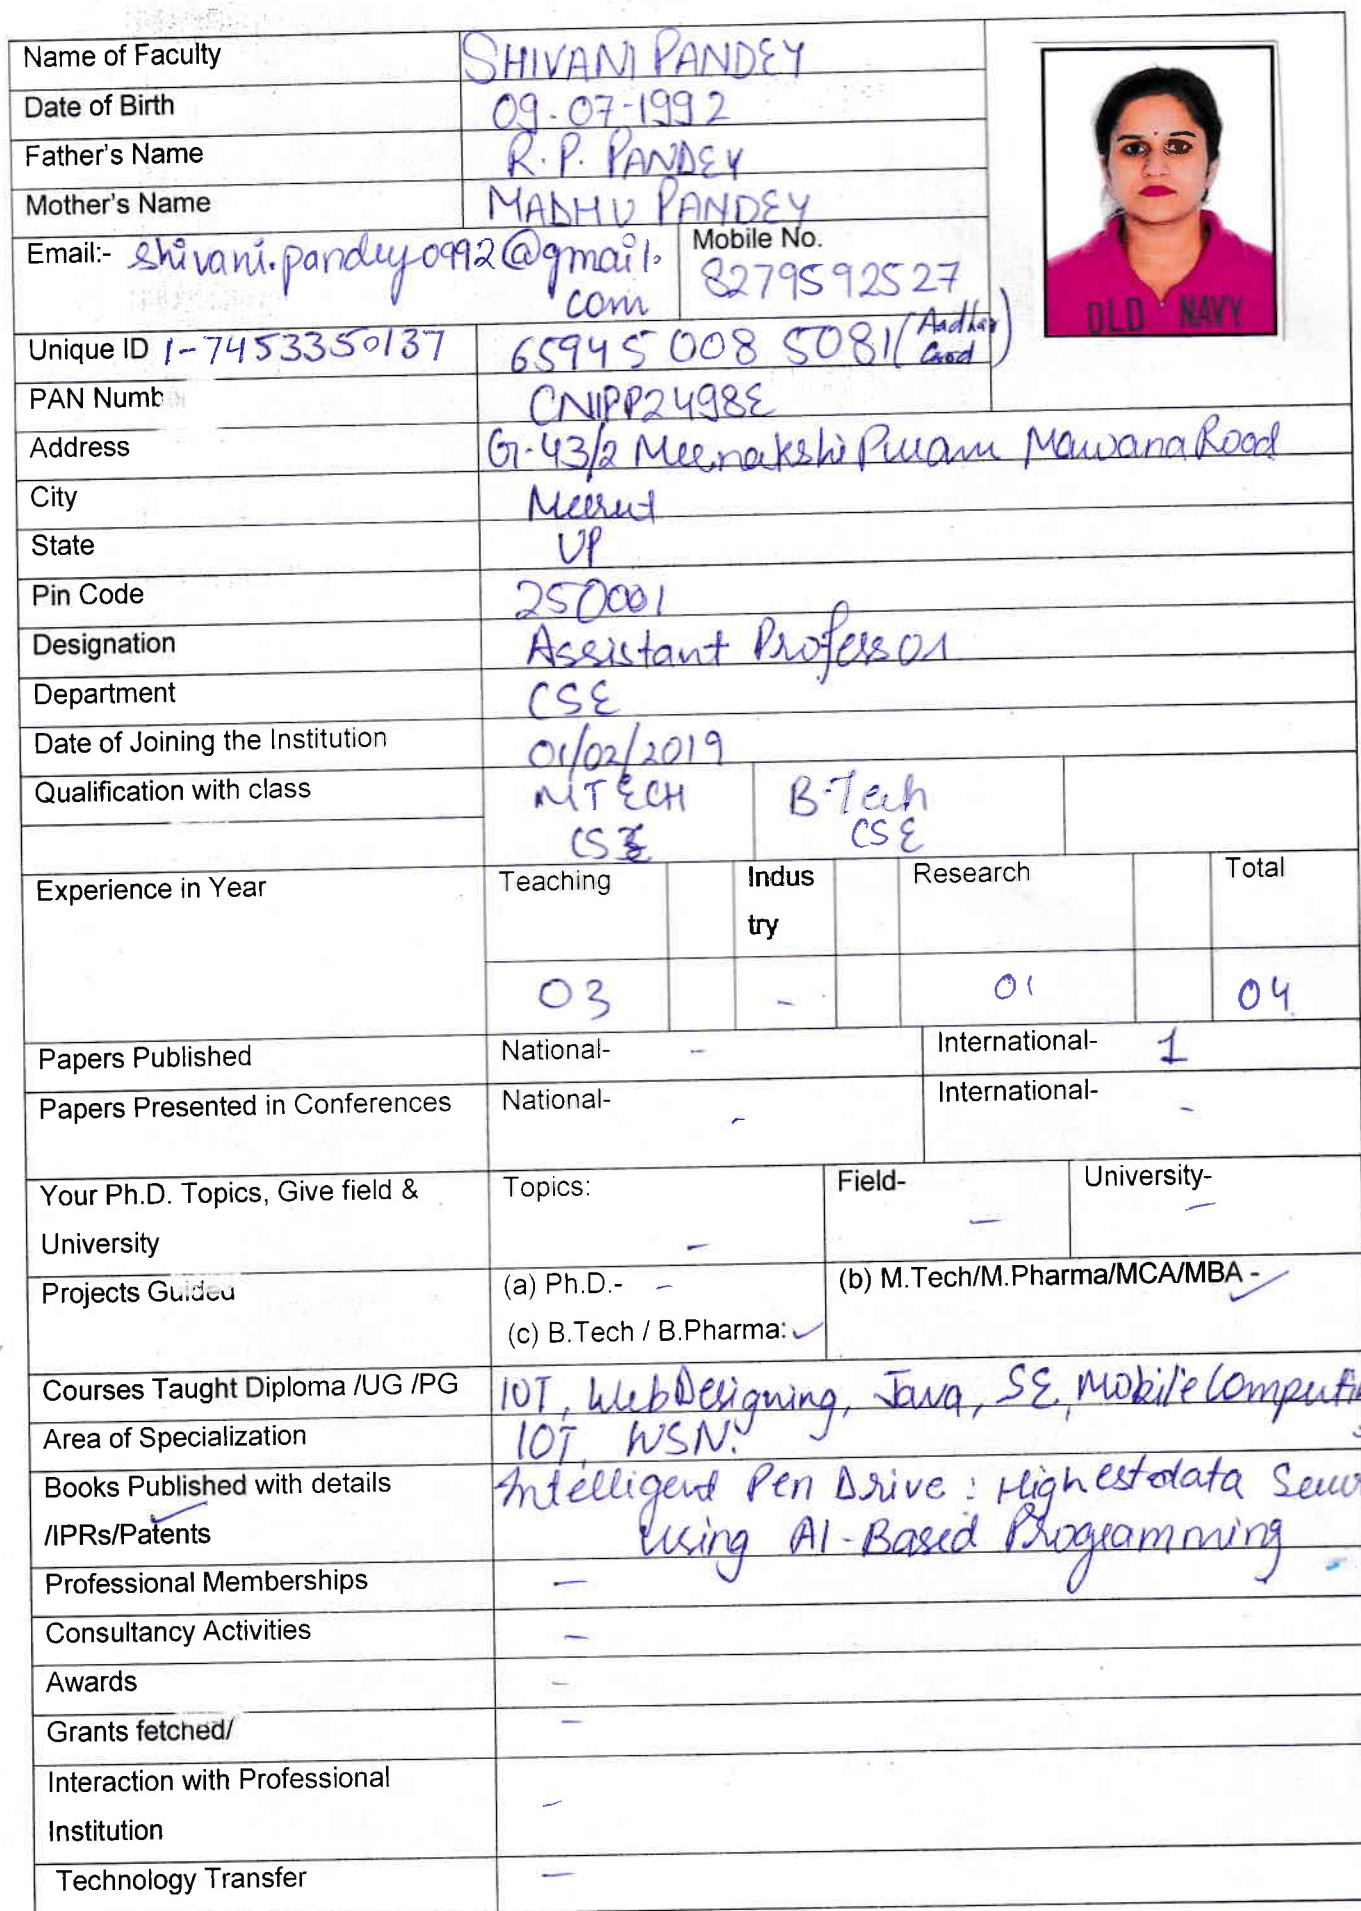 Name of Faculty SHIVANI PANDEY
Date of Birth 09-07-1992
Father's Name R.P. PANDEY
Mother's Name MADHU PANDEY
Email:- shivani.pandey0992@gmail. Mobile No.
com 8279592527
OLD NAVY
Unique ID 1-7453350137 65945 008 5081 (Aadhar Card)
PAN Numb CNIPP2498E
Address G-43/2 Meenakshi Puram Mawana Road
City Meerut
State UP
Pin Code 250001
Designation Assistant Professor
Department CSE
Date of Joining the Institution 01/02/2019
Qualification with class MTECH B-Tech
CSE CSE
Experience in Year Teaching Indus Research Total
try
03 - 01 04
Papers Published National- - International- 1
Papers Presented in Conferences National- - International- -
Your Ph.D. Topics, Give field & Topics: Field- University-
University - - -
Projects Guided (a) Ph.D.- - (b) M.Tech/M.Pharma/MCA/MBA - ✓
(c) B.Tech / B.Pharma: ✓
Courses Taught Diploma /UG /PG IOT, Web Designing, Java, SE, Mobile Computin
Area of Specialization IOT, WSN.
Books Published with details Intelligent Pen Drive : Highest data Secur
/IPRs/Patents using AI-Based Programming
Professional Memberships -
Consultancy Activities -
Awards -
Grants fetched/ -
Interaction with Professional
Institution -
Technology Transfer -